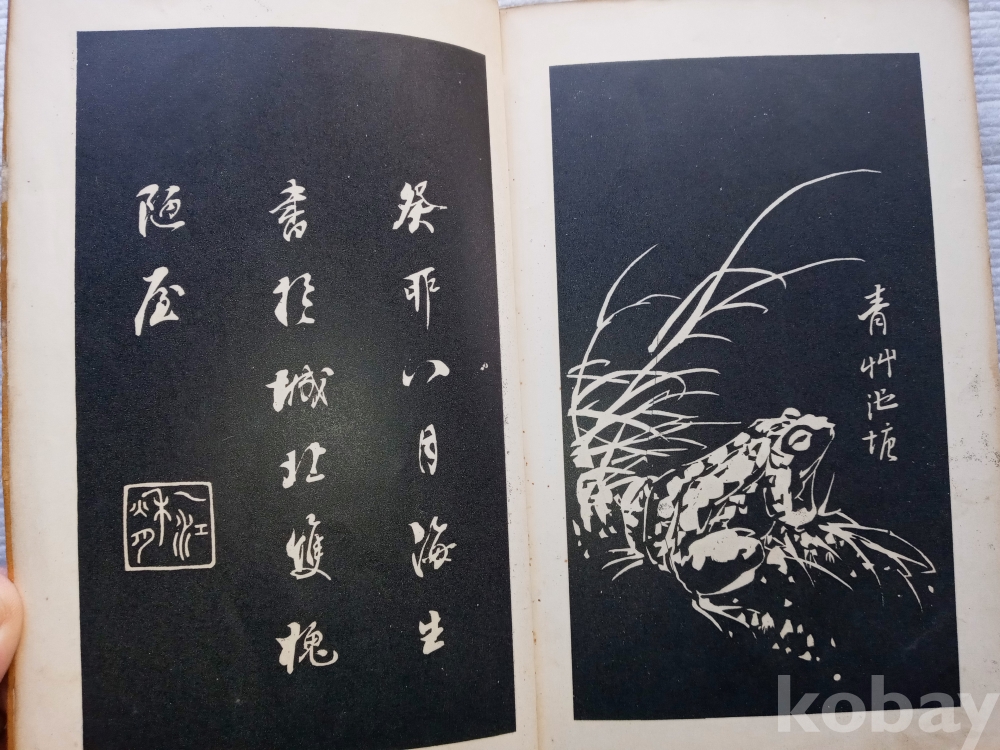 癸卯八月海生
書於城北雙槐
陋屋
一江秋
青艸池塘
kobay